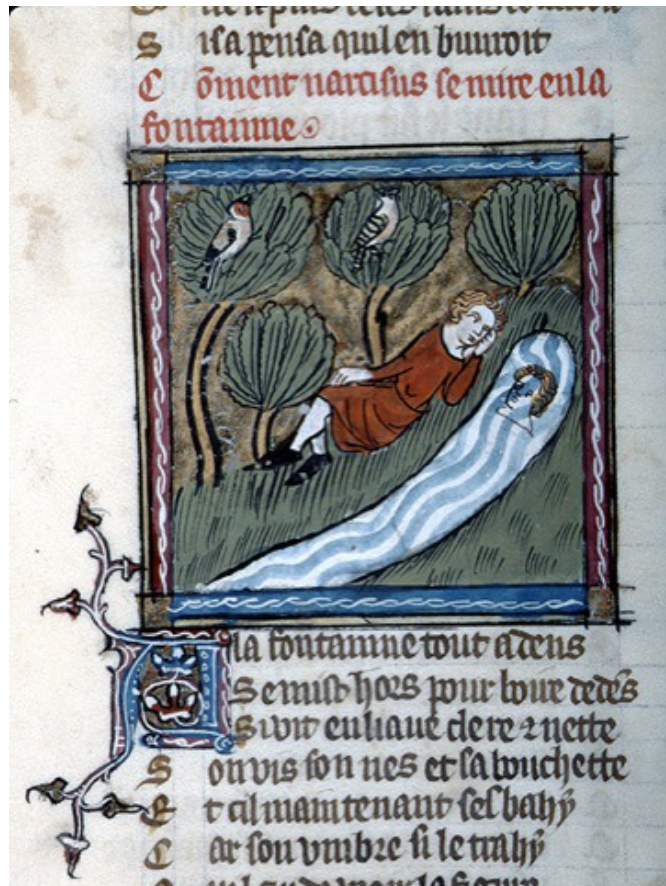 S i sa pensa quil en buuroit
C õment narcisus se mire en la
fontainne
A la fontainne tout adens
S e mist hors pour boire dedẽs
S i uit en liaue clere ⁊ nette
S on vis son nes et sa bouchette
E t cil maintenant sesbahy
C ar son vmbre si le trahy